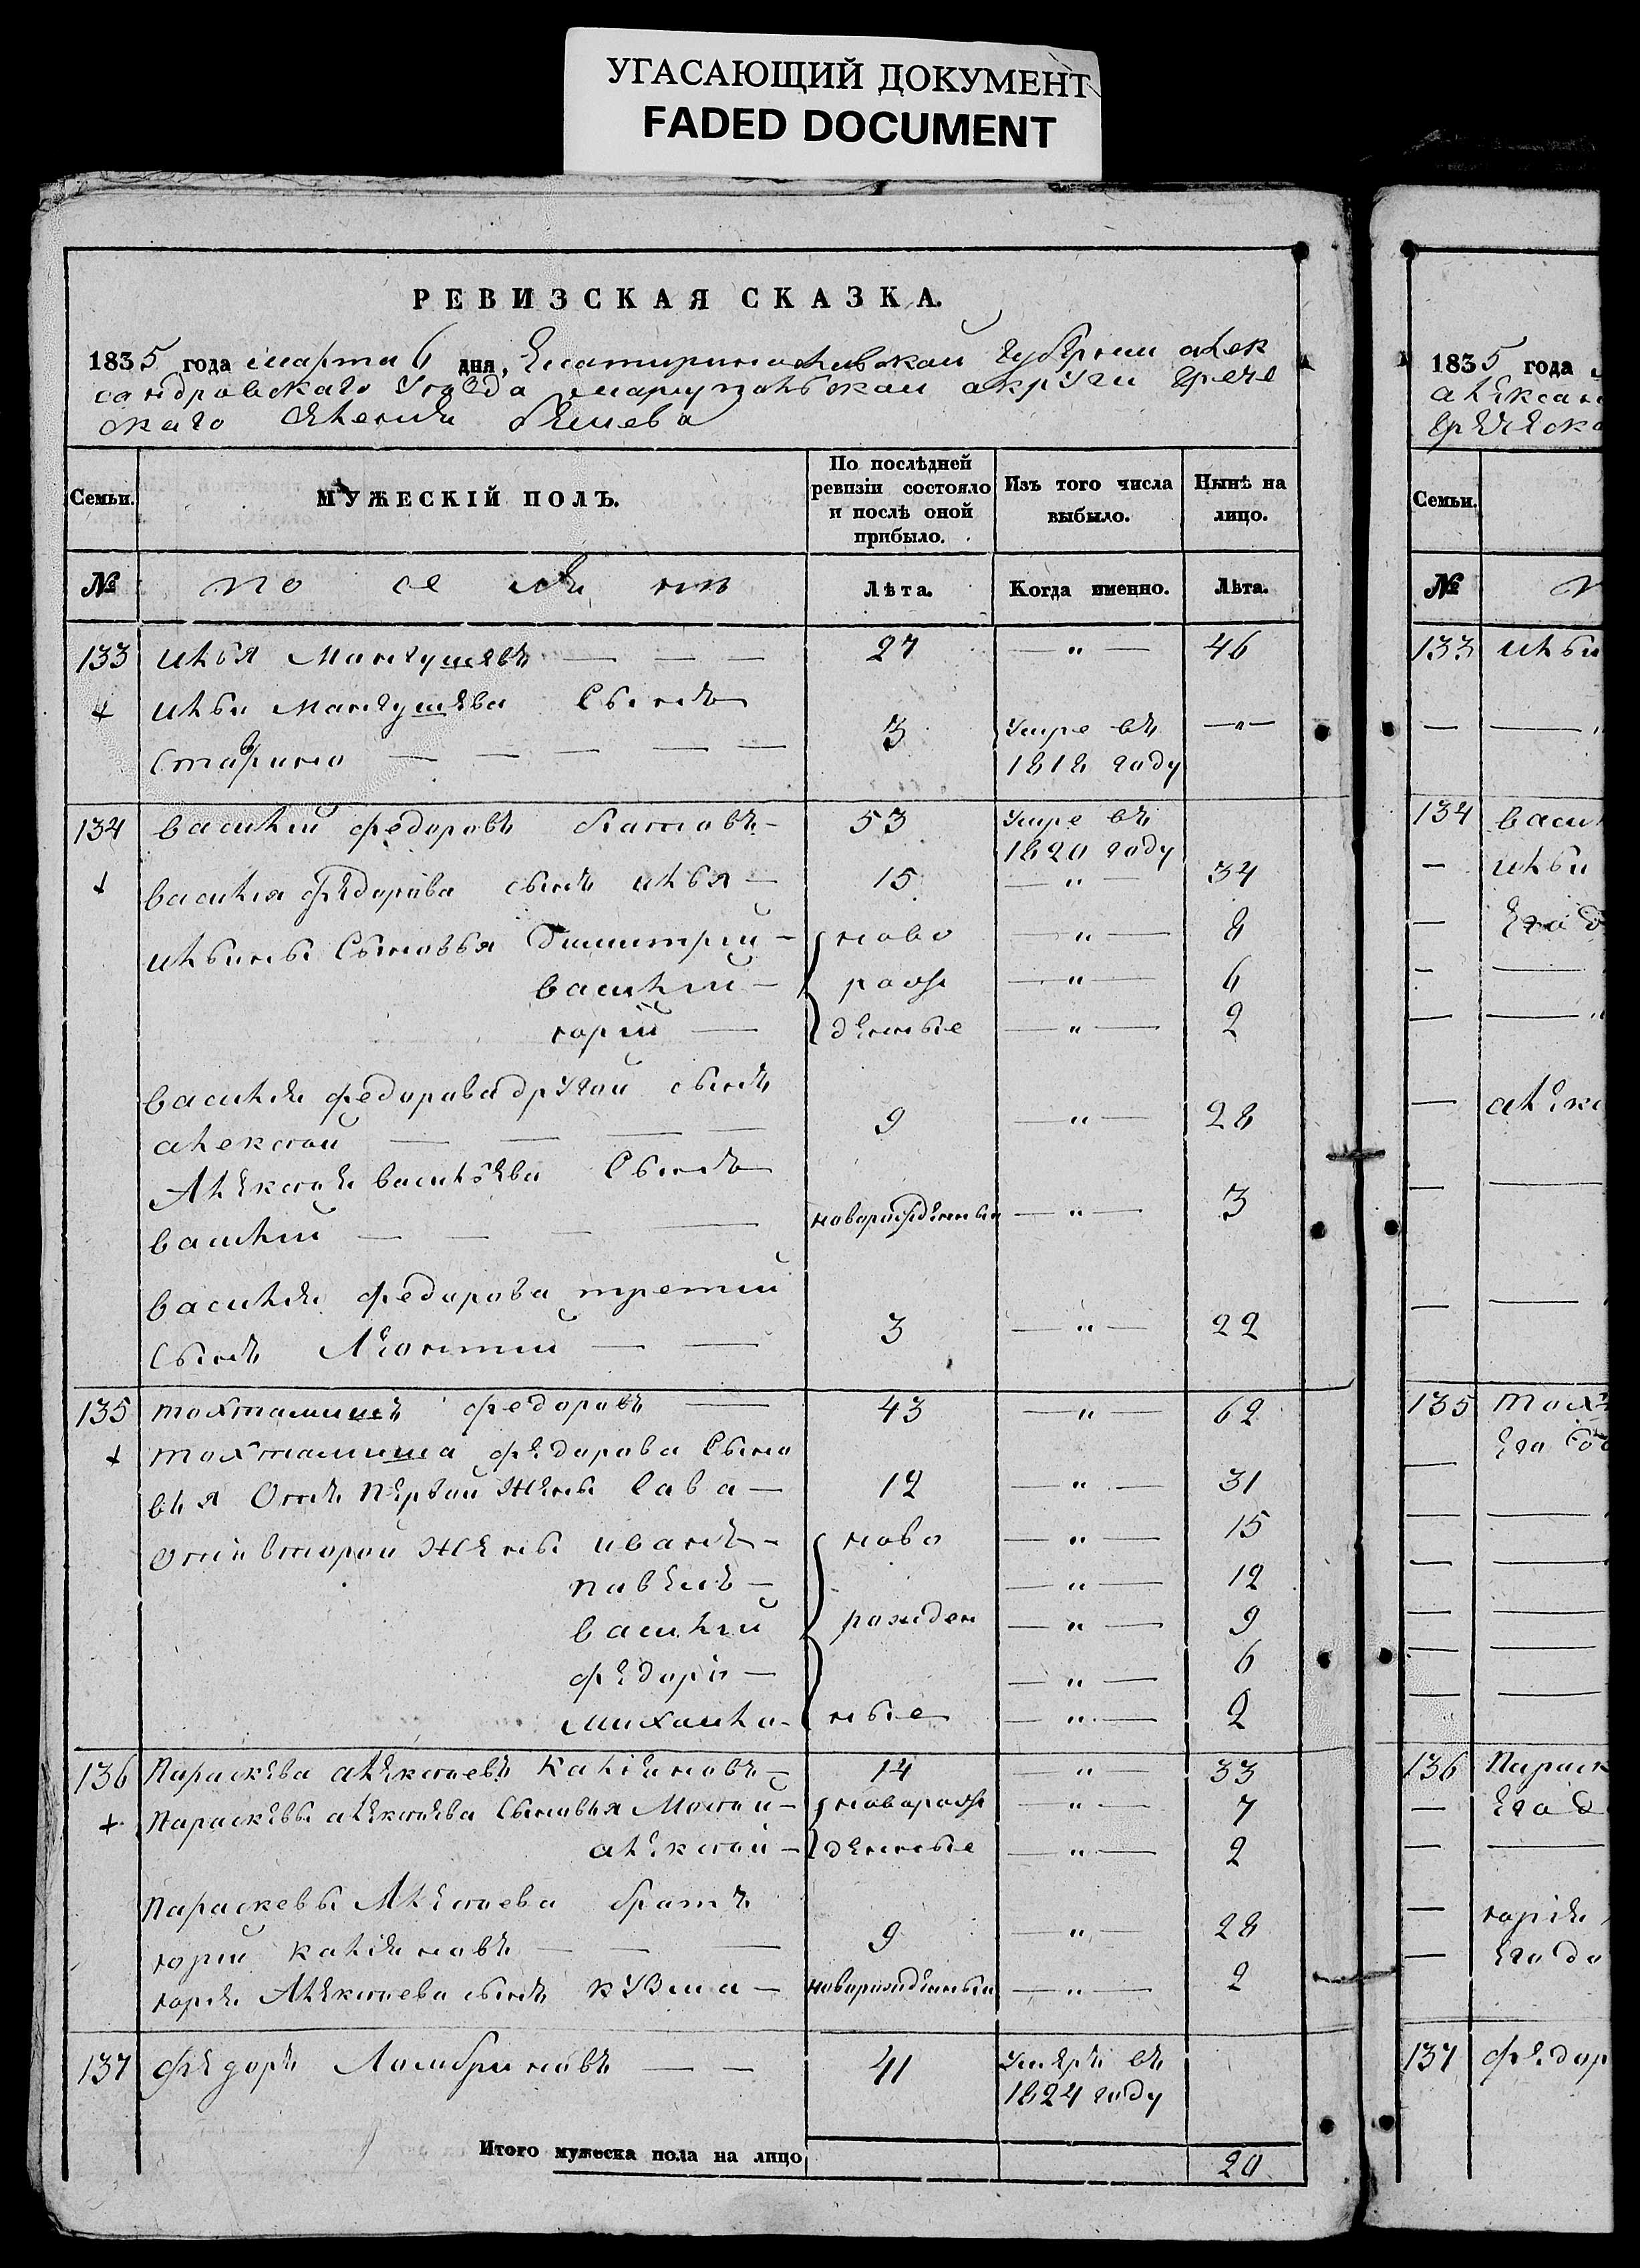 УГАСАЮЩИЙ ДОКУМЕНТ
FADED DOCUMENT
РЕВИЗСКАЯ СКАЗКА.
1835 года марта 6 дня, Екатириносливской губернии алек
сандровскаго уезда мариупольской округи грече
скаго селения бешева
Семьи. МУЖЕСКІЙ ПОЛЪ. По послѣдней ревизіи состояло и послѣ оной прибыло. Изъ того числа выбыло. Нынѣ на лицо.
№ Лѣта. Когда именно. Лѣта.
133 илья Мангушевъ — — — 27 — " — 46
+ ильи Мангушева Сынъ
— — — — 3 умре въ 1818 году — " —
134 василий федоровъ — 53 умре въ 1820 году
+ василия федорова сынъ илья — 15 — " — 34
ильины Сыновья димитрий — ново — " — 8
василий — рож — " — 6
юрий — денные — " — 2
василия федорова другой сынъ
алексей — — — — 9 — " — 28
Алексея васильева Сынъ
василий — — — — новорожденный — " — 3
василия федорова третий
сынъ Леонтий — — 3 — " — 22
135 тохтамишъ федоровъ — 43 — " — 62
+ тохтамиша федорова Сыно
вья Отъ первой жены Сава — 12 — " — 31
отъ второй жены иванъ — ново — " — 15
павелъ — — " — 12
василий рожден — " — 9
федоръ — — " — 6
михаила — ные — " — 2
136 Параскева алексеевъ — 14 — " — 33
+ Параскевы алексеева Сыновья — новорож — " — 7
алексей — денные — " — 2
Параскевы Алексеева братъ
юрий — — — 9 — " — 28
юрия Алексеева сынъ кузма — новорожденный — " — 2
137 федоръ — — 41 умеръ въ 1824 году
Итого мужеска пола на лицо 20
1835 года
алексан
гречеcко
Семьи.
№
133 ильи
134 васил
ильи
Его д
алекс
135 тохт
Его
136 Параск
Его д
юрия
Его до
137 федор